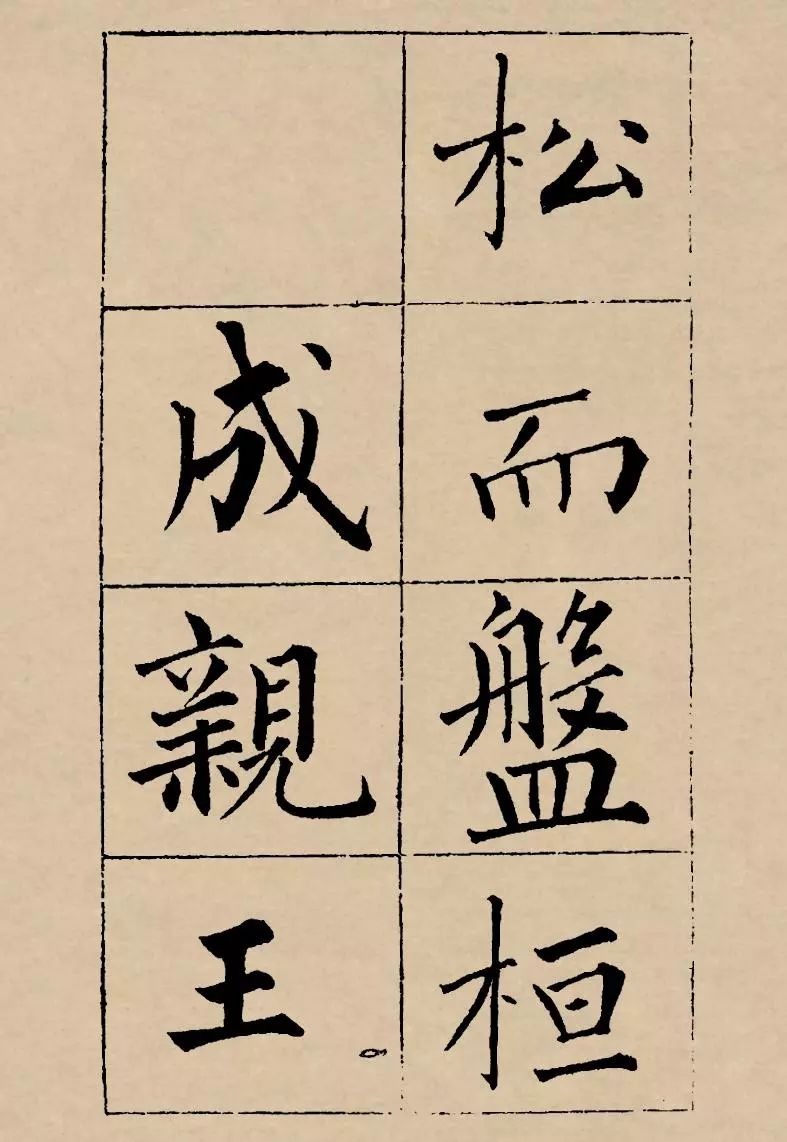 松而盤桓
成親王